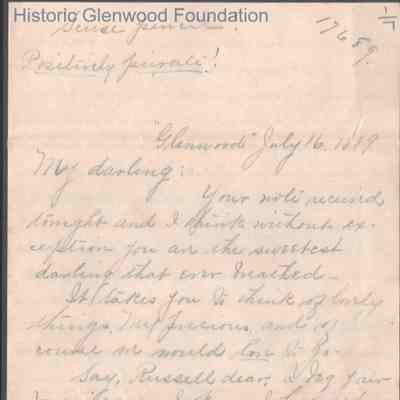 Historic Glenwood Foundation
Sense
17689.
1/7
Positively private!
"Glenwood" July 16, 1889
My darling:
Your note received
tonight and I think without ex-
ception you are the sweetest
darling that ever breathed—
It takes you to think of lovely
things, My Precious, and of
course we would love to go—
Say, Russell dear, I beg your